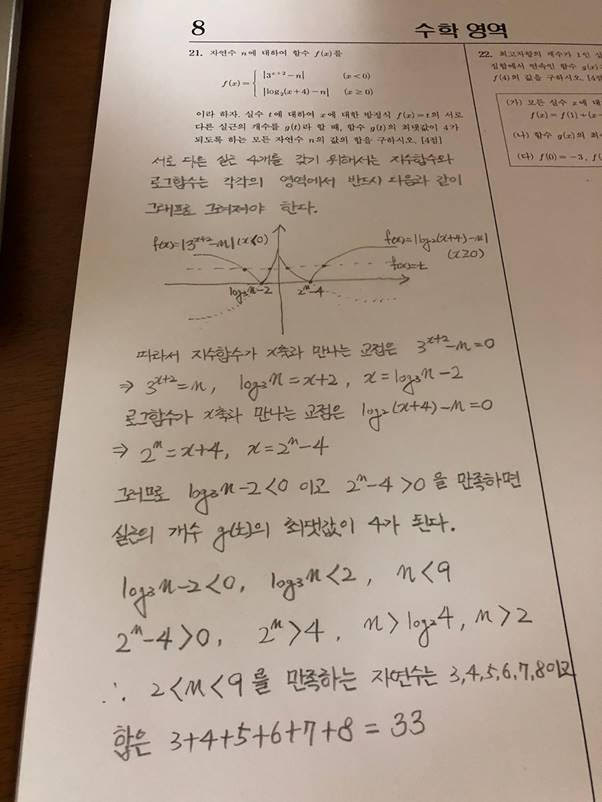 8
수학 영역
21. 자연수 n에 대하여 함수 f(x)를
f(x)={ |3^{x+2}-n| (x<0)
|log₂(x+4)-n| (x≥0)
이라 하자. 실수 t에 대하여 x에 대한 방정식 f(x)=t의 서로
다른 실근의 개수를 g(t)라 할 때, 함수 g(t)의 최댓값이 4가
되도록 하는 모든 자연수 n의 값의 합을 구하시오. [4점]
서로 다른 실근 4개를 갖기 위해서는 지수함수와
로그함수는 각각의 영역에서 반드시 다음과 같이
그대프로 그려져야 한다.
f(x)=|3^{x+2}-n|(x<0)
f(x)=|log₂(x+4)-n|
(x≥0)
f(x)=t
log₃n-2
2ⁿ-4
따라서 지수함수가 x축과 만나는 교점은 3^{x+2}-n=0
⇒ 3^{x+2}=n, log₃n=x+2, x=log₃n-2
로그함수가 x축과 만나는 교점은 log₂(x+4)-n=0
⇒ 2ⁿ=x+4, x=2ⁿ-4
그러므로 log₃n-2<0 이고 2ⁿ-4>0 을 만족하면
실근의 개수 g(t)의 최댓값이 4가 된다.
log₃n-2<0, log₃n<2, n<9
2ⁿ-4>0, 2ⁿ>4, n>log₂4, n>2
∴ 2<n<9를 만족하는 자연수는 3,4,5,6,7,8이고
합은 3+4+5+6+7+8=33
22. 최고차항의 계수가 1인
집합에서 연속인 함수 g(x)
f(4)의 값을 구하시오. [4점
(가) 모든 실수 x에 대
f(x)=f(1)+(x-
(나) 함수 g(x)의 최
(다) f(0)=-3, f